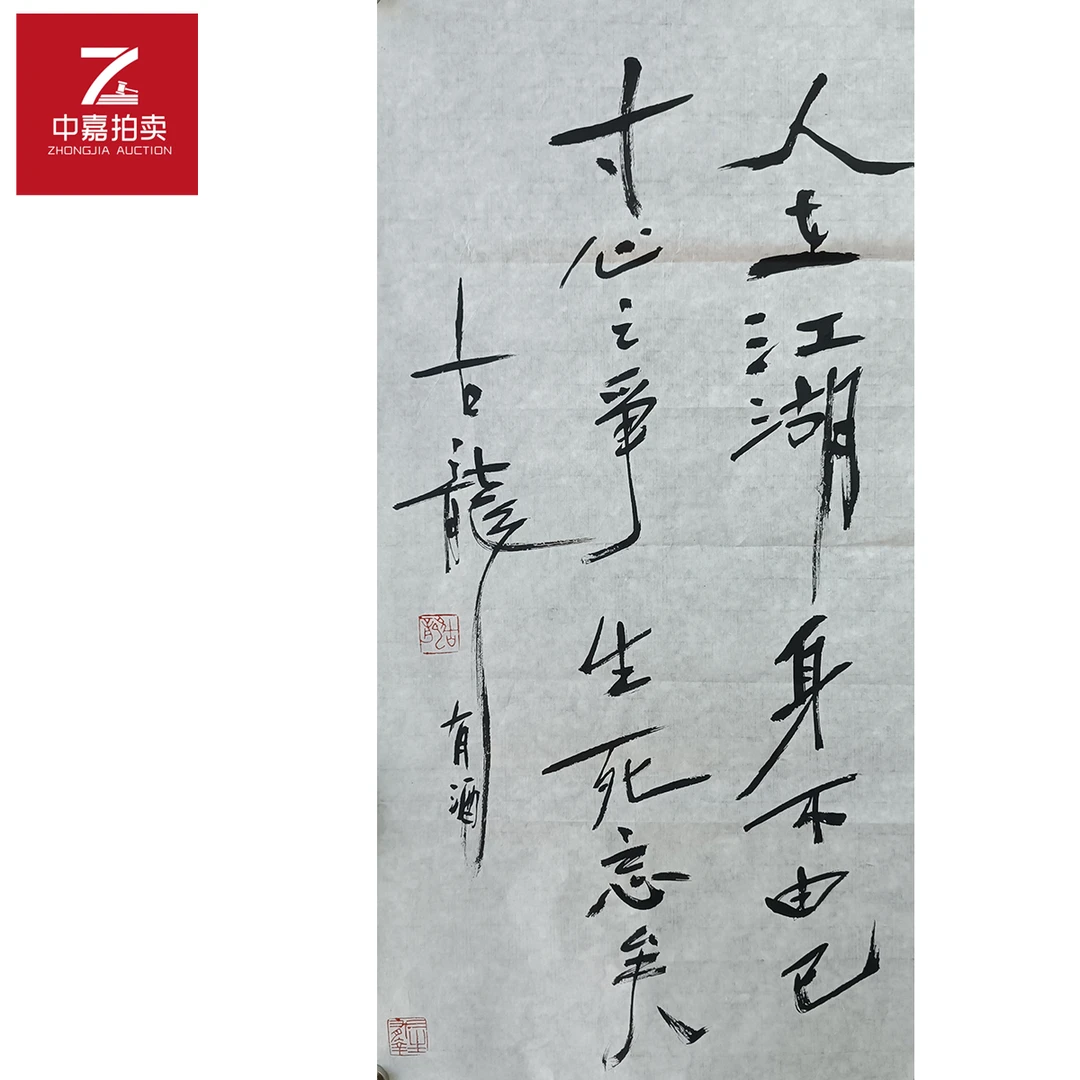 中嘉拍卖
ZHONGJIA AUCTION
人在江湖身不由己
寸心之爭生死忘矣
古龍
有酒